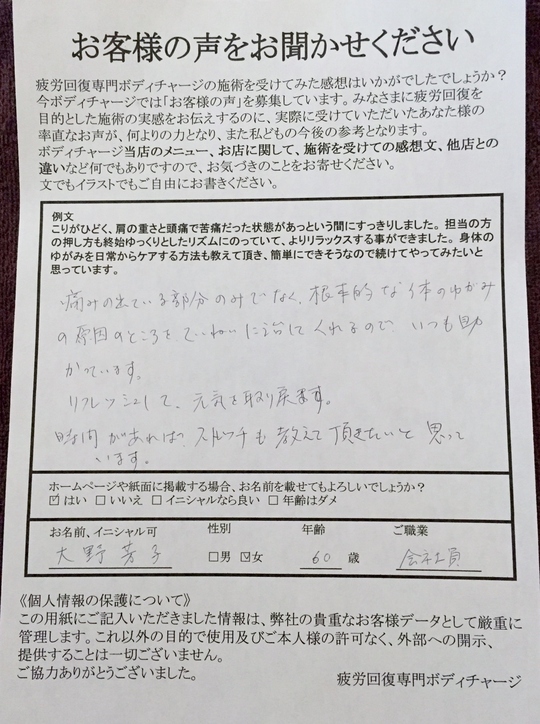 お客様の声をお聞かせください
疲労回復専門ボディチャージの施術を受けてみた感想はいかがでしたでしょうか？
今ボディチャージでは「お客様の声」を募集しています。みなさまに疲労回復を
目的とした施術の実感をお伝えするのに、実際に受けていただいたあなた様の
率直なお声が、何よりの力となり、また私どもの今後の参考となります。
ボディチャージ当店のメニュー、お店に関して、施術を受けての感想文、他店との
違いなど何でもありですので、お気づきのことをお寄せください。
文でもイラストでもご自由にお書きください。
例文
こりがひどく、肩の重さと頭痛で苦痛だった状態があっという間にすっきりしました。担当の方
の押し方も終始ゆっくりとしたリズムにのっていて、よりリラックスする事ができました。身体の
ゆがみを日常からケアする方法も教えて頂き、簡単にできそうなので続けてやってみたいと
思っています。
痛みの出ている部分のみでなく、根本的な体のゆがみ
の原因のところをていねいに治してくれるので、いつも助
かっています。
リフレッシュして、元気を取り戻ます。
時間があれば、ストレッチも教えて頂きたいと思って
います。
ホームページや紙面に掲載する場合、お名前を載せてもよろしいでしょうか？
☑はい □いいえ □イニシャルなら良い □年齢はダメ
お名前、イニシャル可 性別 年齢 ご職業
大野 芳子 □男 ☑女 60 歳 会社員
《個人情報の保護について》
この用紙にご記入いただきました情報は、弊社の貴重なお客様データとして厳重に
管理します。これ以外の目的で使用及びご本人様の許可なく、外部への開示、
提供することは一切ございません。
ご協力ありがとうございました。
疲労回復専門ボディチャージ